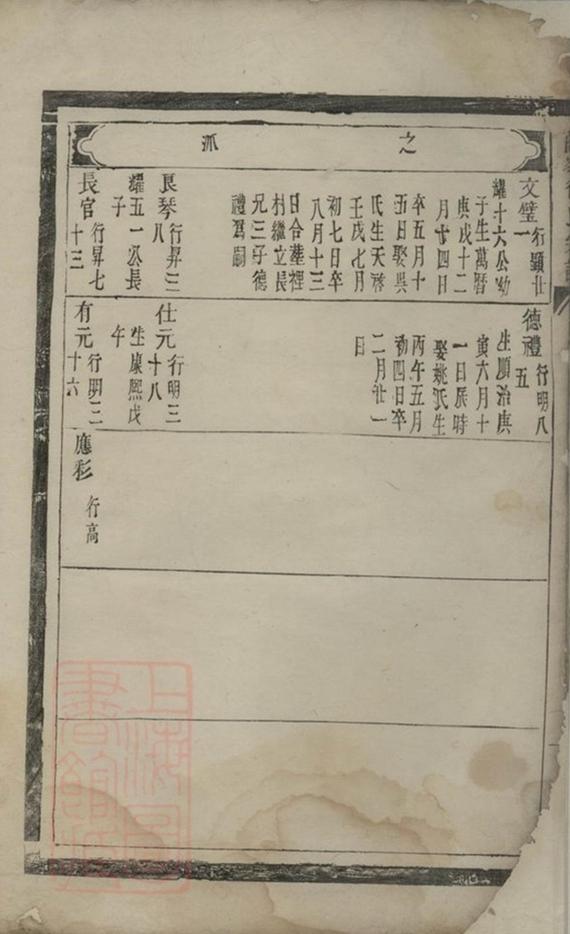 之
派
文璧 行顯廿
一
耀十六公幼
子生萬曆
庚戌十二
月廿四日
卒五月十
五日娶吳
氏生天啓
壬戌七月
初七日卒
八月十三
日合塟裡
村繼立長
兄三子德
禮為嗣
良琴 行昇三
八
耀五一公長
子
長官 行昇七
十三
德禮 行明八
五
生順治庚
寅六月十
一日辰時
娶姚氏生
丙午五月
初四日卒
二月廿一
日
仕元 行明三
十八
生康熙戊
午
有元 行明三
十六
應彩 行高
上海圖
書館藏